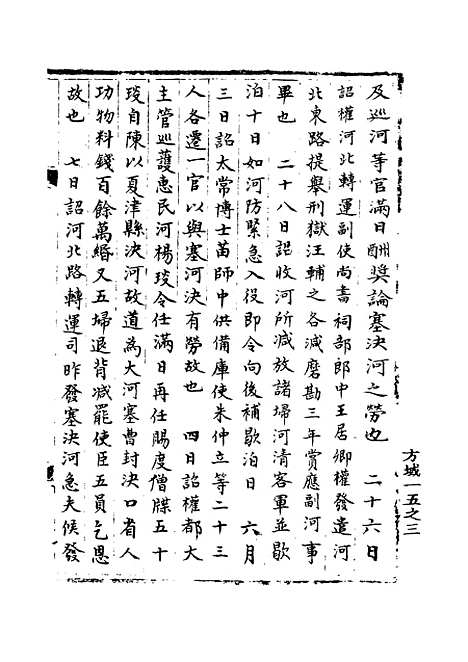 及巡河等官滿日酬獎論塞決河之勞也　二十六日
詔權河北轉運副使尚書祠部郎中王居卿權發遣河
北東路提舉刑獄汪輔之各減磨勘三年賞應副河事
畢也　二十八日詔收河所減放諸埽河清客軍並歇
泊十日如河防緊急入役即令向後補歇泊日　六月
三日詔太常博士苗師中供備庫使朱仲立等二十三
人各遷一官以與塞河決有勞故也　四日詔權都大
主管巡護惠民河楊琰令任滿日再任賜度僧牒五十
琰自陳以夏津縣決河故道為大河塞曹封決口省人
功物料錢百餘萬緡又五埽退背減罷使臣五員乞恩
故也　七日詔河北路轉運司昨發塞決河急夫候發
方域一五之三